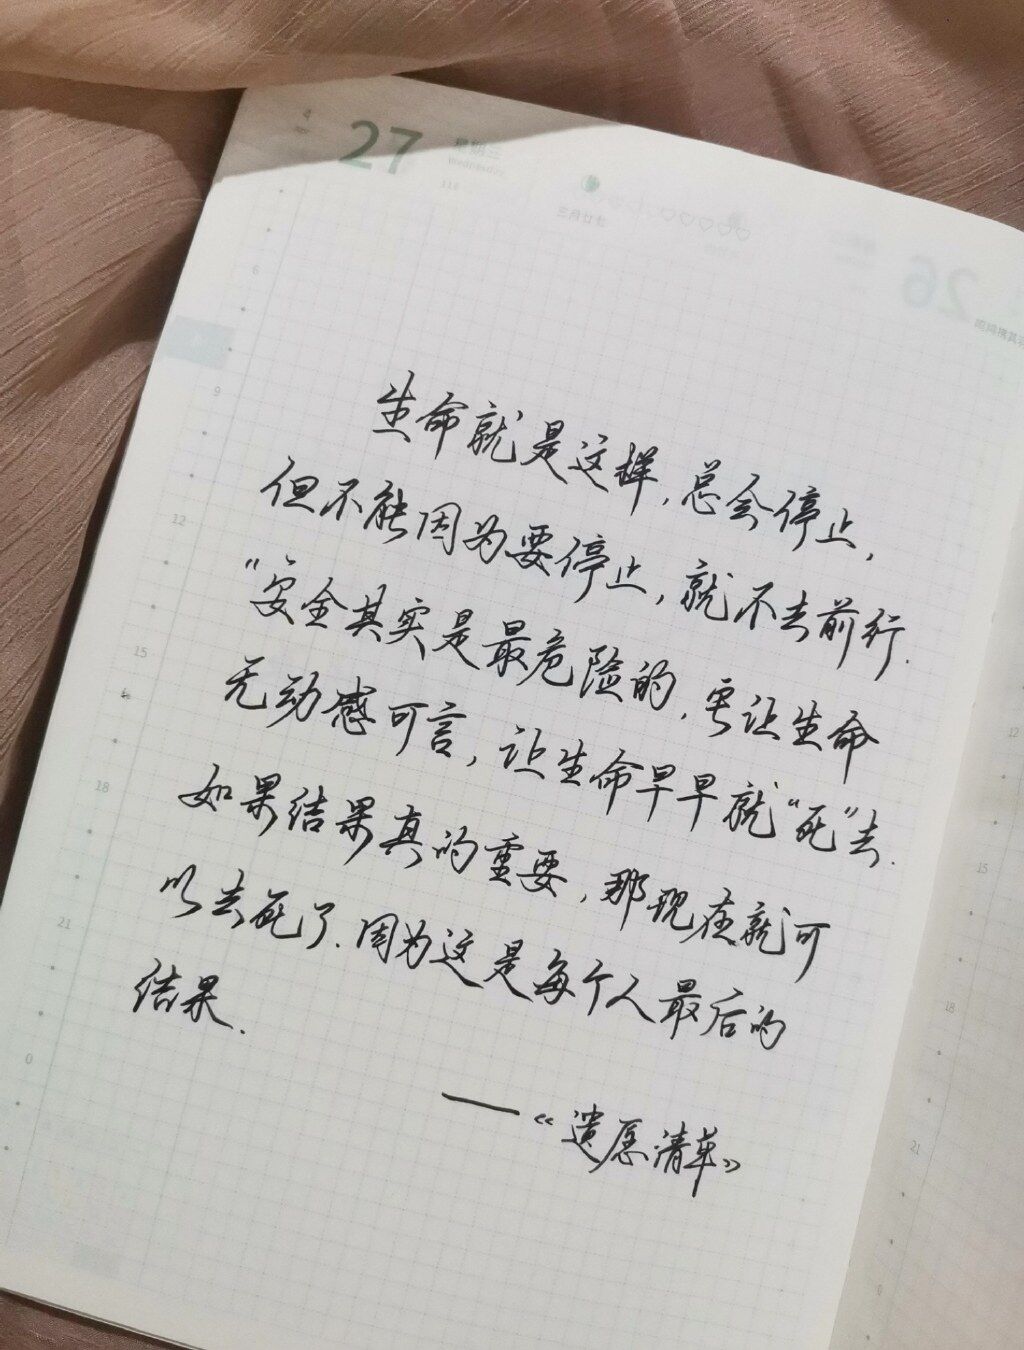 4
27
星期三
Wednesday
118
三月廿七
26
6
9
12
15
18
21
0
生命就是这样,总会停止,
但不能因为要停止,就不去前行.
"安全其实是最危险的,它让生命
无动感可言,让生命早早就"死"去.
如果结果真的重要,那现在就可
以去死了.因为这是每个人最后的
结果.
——《遗愿清单》
12
15
18
21
0